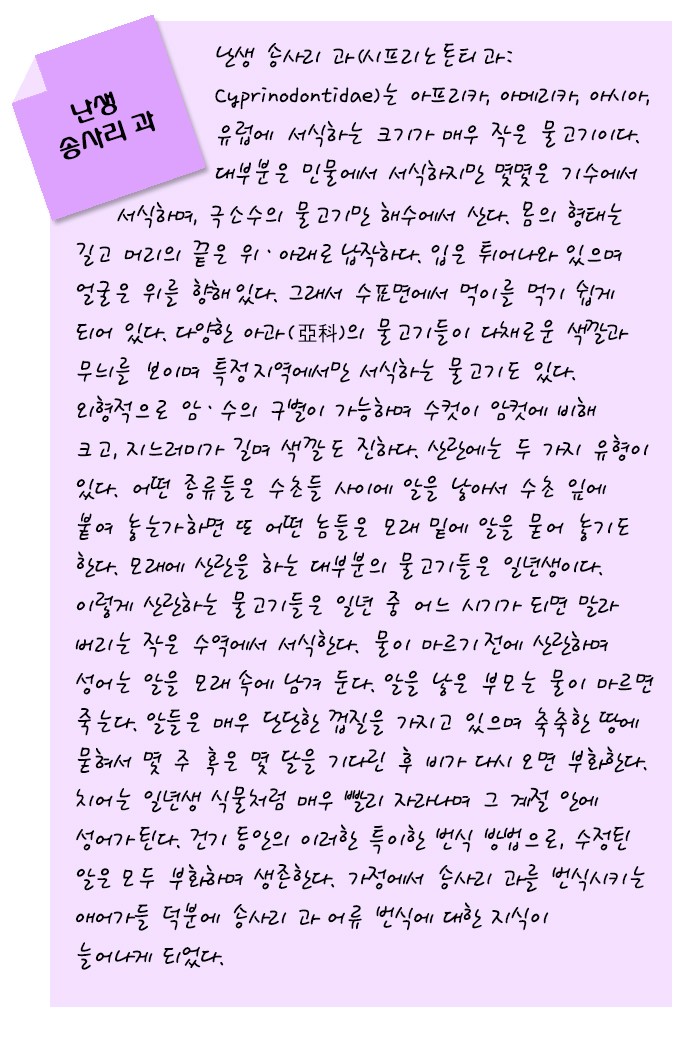 난생
송사리 과
난생 송사리 과(시프리노돈티과:
Cyprinodontidae)는 아프리카, 아메리카, 아시아,
유럽에 서식하는 크기가 매우 작은 물고기이다.
대부분은 민물에서 서식하지만 몇몇은 기수에서
서식하며, 극소수의 물고기만 해수에서 산다. 몸의 형태는
길고 머리의 끝은 위·아래로 납작하다. 입은 튀어나와 있으며
얼굴은 위를 향해있다. 그래서 수표면에서 먹이를 먹기 쉽게
되어 있다. 다양한 아과(亞科)의 물고기들이 다채로운 색깔과
무늬를 보이며 특정지역에서만 서식하는 물고기도 있다.
외형적으로 암·수의 구별이 가능하며 수컷이 암컷에 비해
크고, 지느러미가 길며 색깔도 진하다. 산란에는 두 가지 유형이
있다. 어떤 종류들은 수초들 사이에 알을 낳아서 수초 잎에
붙여 놓는가하면 또 어떤 놈들은 모래 밑에 알을 묻어 놓기도
한다. 모래에 산란을 하는 대부분의 물고기들은 일년생이다.
이렇게 산란하는 물고기들은 일년 중 어느 시기가 되면 말라
버리는 작은 수역에서 서식한다. 물이 마르기전에 산란하며
성어는 알을 모래속에 남겨 둔다. 알을 낳은 부모는 물이 마르면
죽는다. 알들은 매우 단단한 껍질을 가지고 있으며 축축한 땅에
묻혀서 몇 주 혹은 몇 달을 기다린 후 비가 다시 오면 부화한다.
치어는 일년생 식물처럼 매우 빨리 자라나며 그 계절 안에
성어가된다. 건기 동안의 이러한 특이한 번식 방법으로, 수정된
알은 모두 부화하며 생존한다. 가정에서 송사리 과를 번식시키는
애어가들 덕분에 송사리 과 어류 번식에 대한 지식이
늘어나게 되었다.